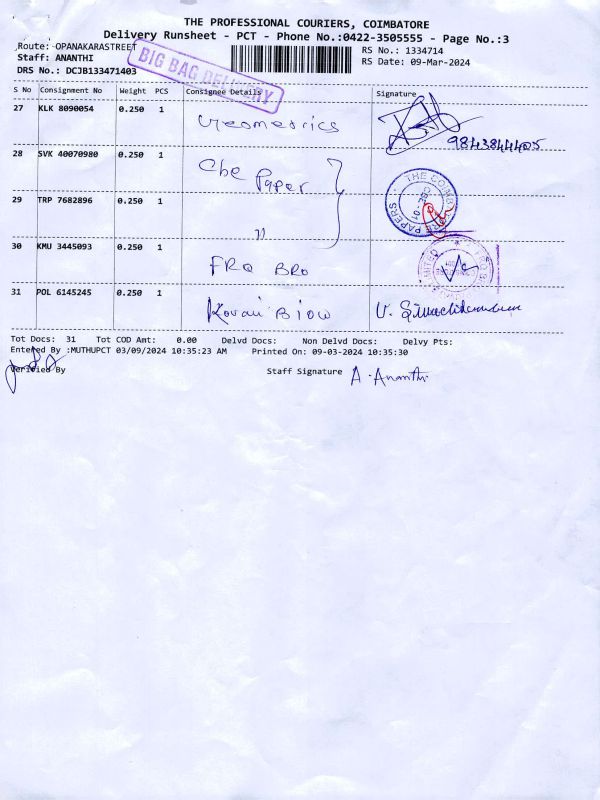 THE PROFESSIONAL COURIERS, COIMBATORE
Delivery Runsheet - PCT - Phone No.:0422-3505555 - Page No.:3
Route: OPANAKARASTREET
RS No.: 1334714
Staff: ANANTHI
RS Date: 09-Mar-2024
DRS No.: DCJB133471403
BIG BAG DELIVERY
S No Consignment No Weight PCS Consignee Details Signature
27 KLK 8090054 0.250 1 Geometrics
9843844405
28 SVK 40070980 0.250 1 Cbe Paper
THE COIMBATORE PAPERS
29 TRP 7682896 0.250 1 "
30 KMU 3445093 0.250 1 FRQ BRO
31 POL 6145245 0.250 1 Kovai Biow
Tot Docs: 31 Tot COD Amt: 0.00 Delvd Docs: Non Delvd Docs: Delvy Pts:
Entered By :MUTHUPCT 03/09/2024 10:35:23 AM Printed On: 09-03-2024 10:35:30
Verified By
Staff Signature A. Ananthi